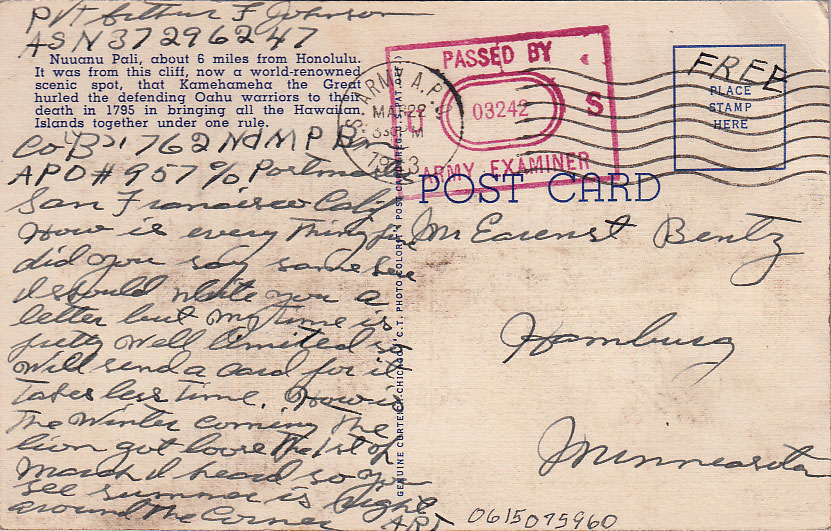 Pvt Arthur F Johnson
ASN 37296247
Nuuanu Pali, about 6 miles from Honolulu.
It was from this cliff, now a world-renowned
scenic spot, that Kamehameha the Great
hurled the defending Oahu warriors to their
death in 1795 in bringing all the Hawaiian
Islands together under one rule.
Co "B" 762nd M P Bn
APO # 957 % Postmaster
San Francisco Calif
How is every thing
did you say same here
I should write you a
letter but my time is
pretty well limited so
will send a card for it
takes less time. How is
the Winter coming the
lion got loose the 1st of
March I heard so you
see summer is right
around the corner
ART
GENUINE CURTEICH-CHICAGO "C.T. PHOTO-COLORIT" POST CARD
U.S. ARMY A.P.O.
MAR 22
330 PM
1943
PASSED BY
U S
03242
ARMY EXAMINER
FREE
PLACE
STAMP
HERE
POST CARD
Mr Earenst Bentz
Hamburg
Minnesota
0615075960